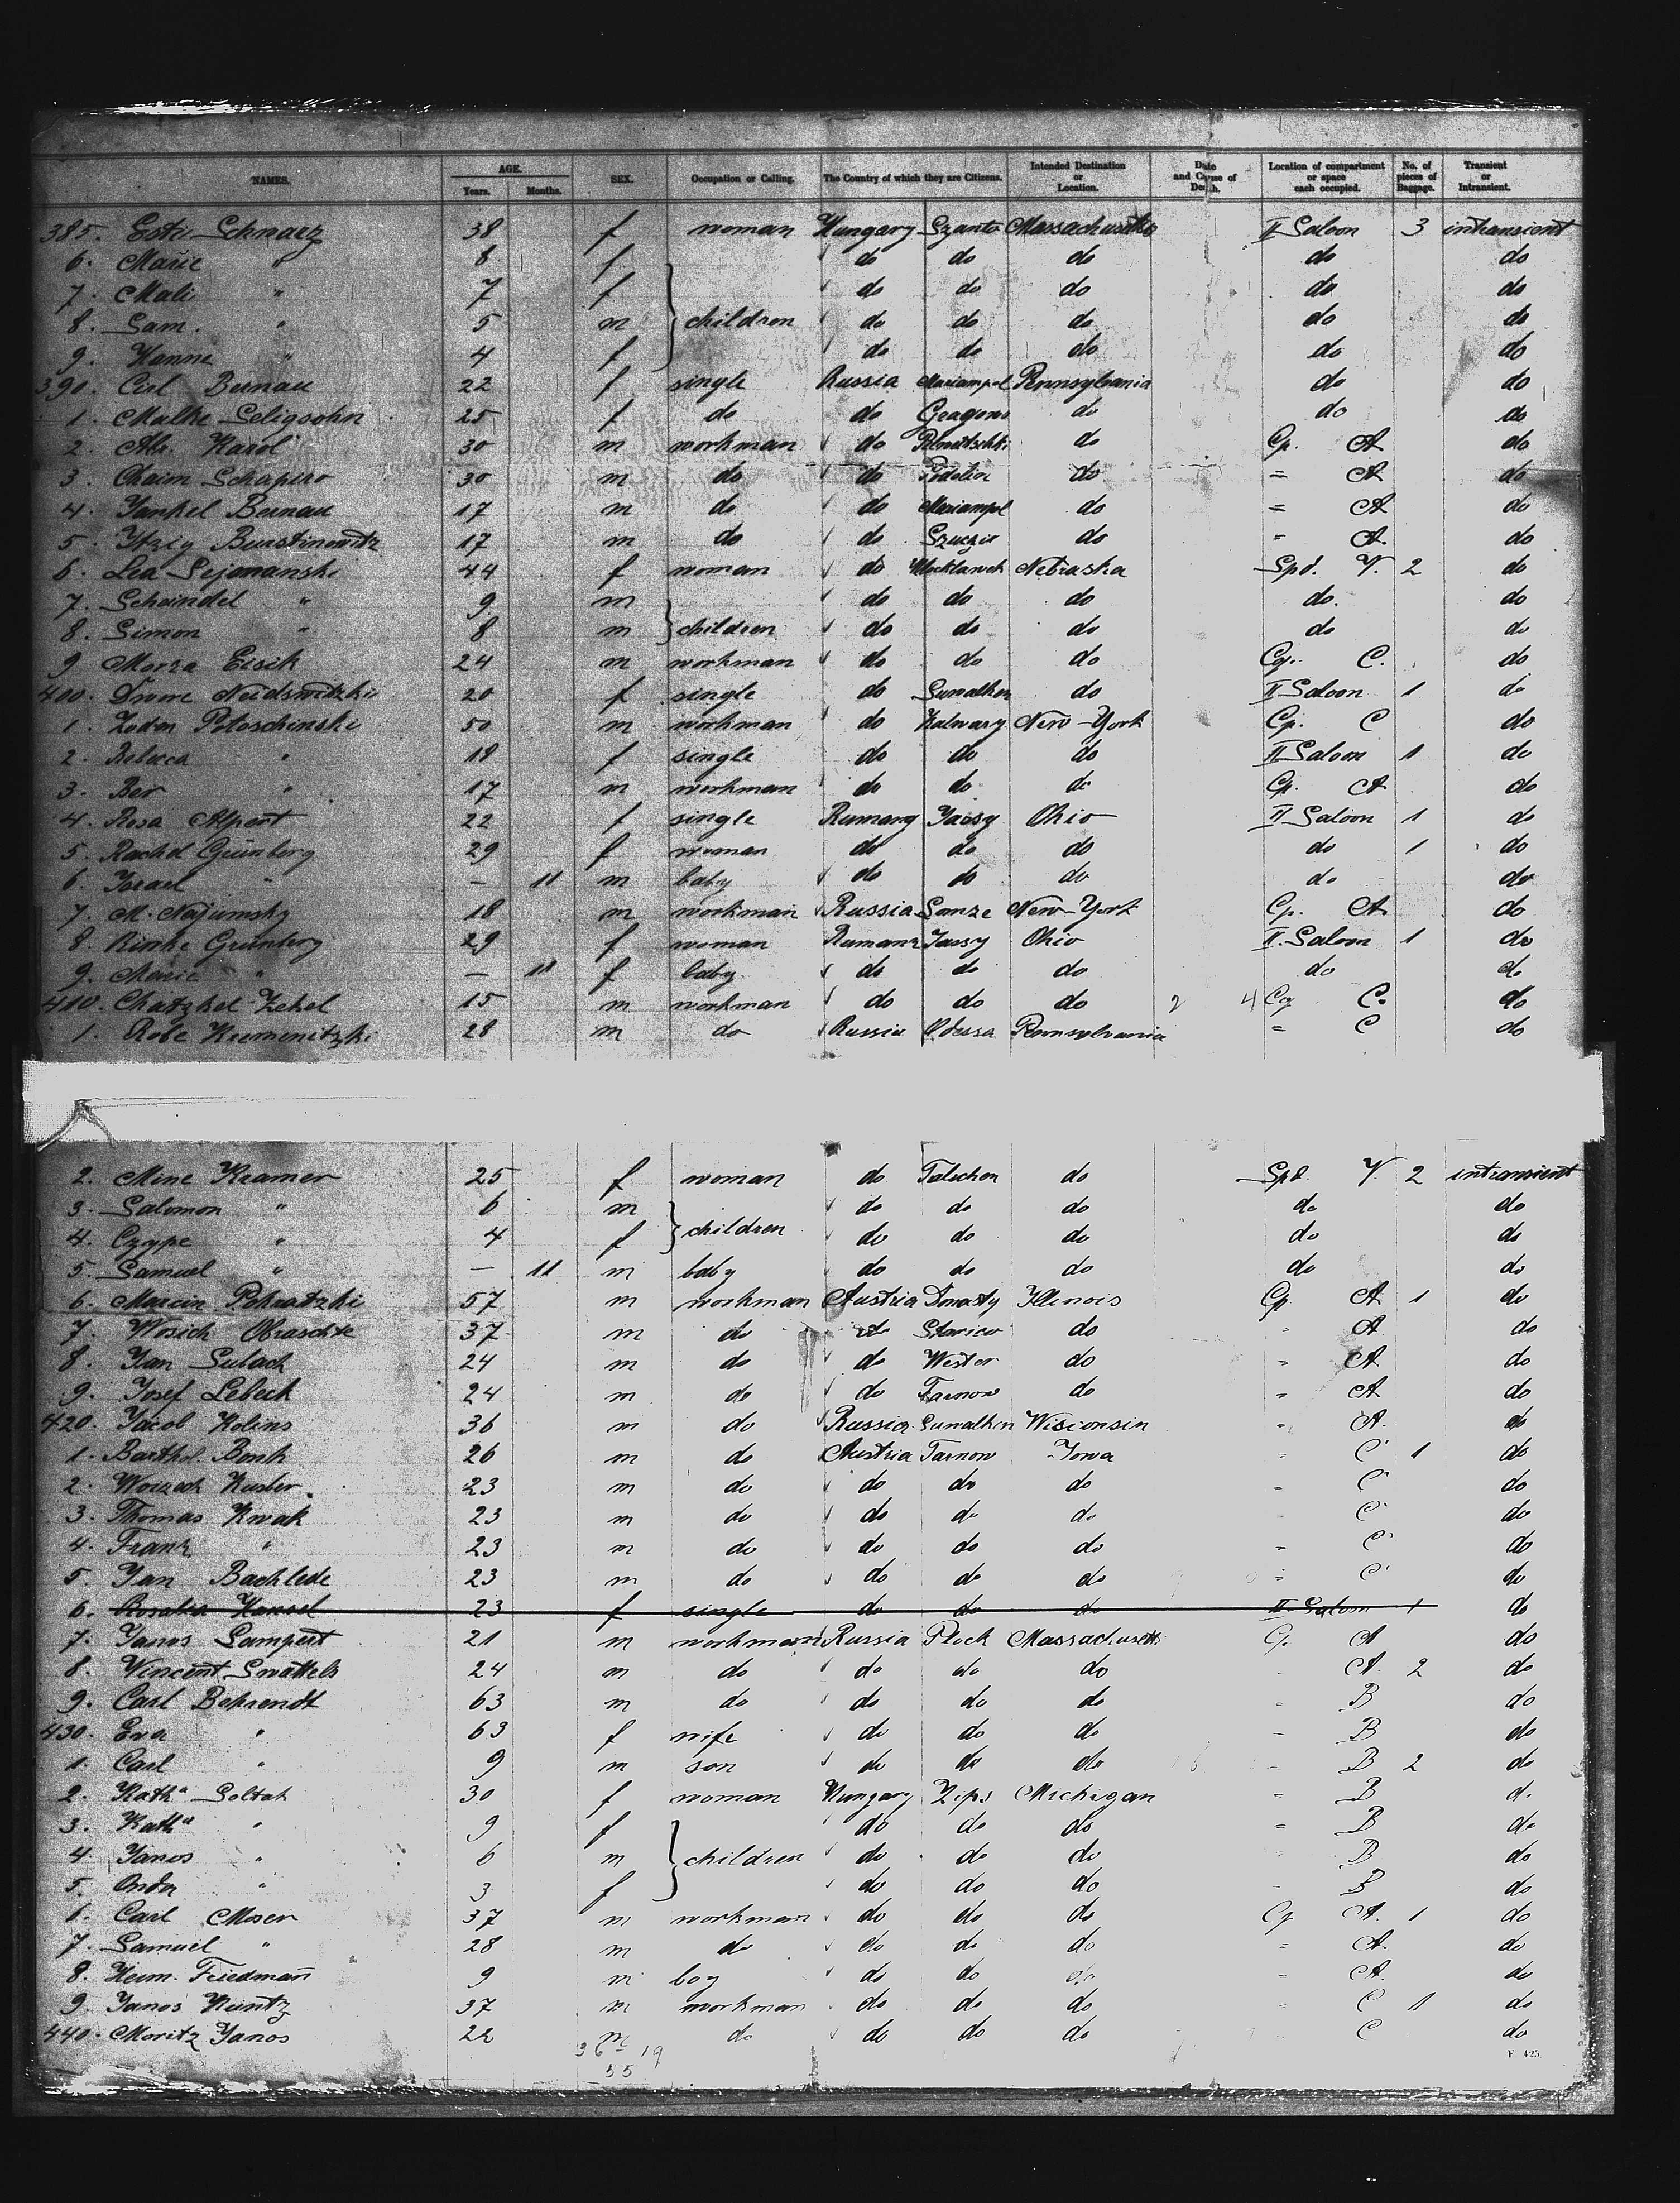 NAMES. AGE. Years. Months. SEX. Occupation or Calling. The Country of which they are Citizens. Intended Destination or Location. Date and Cause of Death. Location of compartment or space each occupied. No. of pieces of Baggage. Transient or Intransient.
385. Esti Schwarz 38 f woman Hungary Szanto Massachusetts II Saloon 3 intransient
6. Marie " 8 f do do do do do
7. Mali " 7 f do do do do do
8. Sam. " 5 m children do do do do do
9. Hanne " 4 f do do do do do
390. Bernau 22 f single Russia Mariampol Pennsylvania do do
1. Malke Seligsohn 25 f do do do do do
2. Abr. Karol 30 m workman do do Cp. A do
3. Chaim Schapiro 30 m do do do = A do
4. Jankel Bernau 17 m do do Mariampol do = A do
5. Itzig Burstinowitz 17 m do do do = A. do
6. Lea 44 f woman do Nebraska Spd. V. 2 do
7. Scheindel " 9 m do do do do. do
8. Simon " 8 m children do do do do do
9 Eisik 24 m workman do do do Cp. C. do
400. 20 f single do Suwalken do II Saloon 1 do
1. 50 m workman do Kalwary New-York Cp. C do
2. Rebecca " 18 f single do do do II Saloon 1 do
3. Ber " 17 m workman do do do Cp. A do
4. Rosa Alpert 22 f single Rumany Jassy Ohio II Saloon 1 do
5. Rachel Grünberg 29 f woman do do do do 1 do
6. Israel " — 11 m baby do do do do do
7. M. Najumsky 18 m workman Russia New-York Cp. A do
8. Rinke Grünberg 29 f woman Jassy Ohio II Saloon 1 do
9. Marie " — 11 f baby do do do do do
410. Chatzkel Zekel 15 m workman do do do 2 4 Cp C. do
1. Robe Kremenitzki 28 m do Russia Odessa Pennsylvania = C do
2. Mine Kramer 25 f woman do Telschen do Spd. V. 2 intransient
3. Salomon " 6 m do do do do do
4. Czype " 4 f children do do do do do
5. Samuel " — 11 m baby do do do do do
6. Marcin 57 m workman Austria Illinois Cp A 1 do
7. 37 m do do do - A do
8. Jan Sulach 24 m do do Wester do = A do
9. Josef Lebeck 24 m do do Tarnow do - A do
420. Jacob Kolins 36 m do Russia Suwalken Wisconsin - A. do
1. Barthol. Bonk 26 m do Austria Tarnow Iowa = C 1 do
2. 23 m do do do do - C do
3. Thomas Kwak 23 m do do do do C do
4. Frank " 23 m do do do do - C do
5. Jan Bachlede 23 m do do do do = C do
6. Rosalia 23 f single do do do II Saloon 1 do
7. Janos Lampert 21 m workman Russia Plock Massachusetts Cp. A do
8. Wincent 24 m do do do do A. 2 do
9. Carl Behrendt 63 m do do do do - B do
430. Eva " 63 f wife do do do - B do
1. Carl " 9 m son do do do - B 2 do
2. Kath.a Soltah 30 f woman Hungary Zips Michigan = B do
3. Kath.a " 9 f do do do = B do
4. Janos " 6 m children do do do - B do
5. " 3 f do do do - B do
6. Carl Moser 37 m workman do do do Cp A. 1 do
7. Samuel " 28 m do do do do = A. do
8. Herm. Friedmañ 9 m boy do do do - A. do
9. Janos Küntz 37 m workman do do do - C 1 do
440. Moritz Janos 22 m do do do do C do
36 19
55
F 425